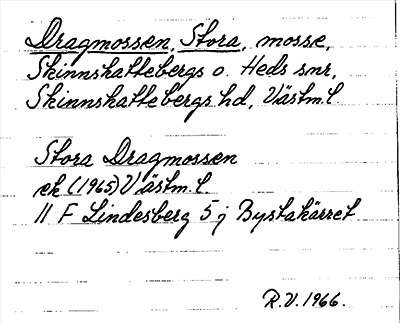 Dragmossen, Stora, mosse,
Skinnskattebergs o. Heds snr,
Skinnskattebergs hd, Västm.l.
Stora Dragmossen
ek (1965) Västm.l
11 F Lindesberg 5 j Bystakärret
R.V. 1966.